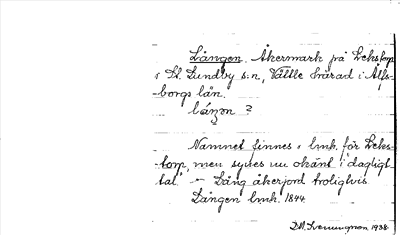 Lången. Åkermark på Lekstorp
i St. Lundby s:n, Vättle härad i Älfs-
borgs län.
låŋən ?
Namnet finnes i lmh. för Leks-
torp, men synes nu okänt i dagligt
tal. – Lång åkerjord troligtvis.
Lången lmh. 1844
D.M. Svenungsson 1938